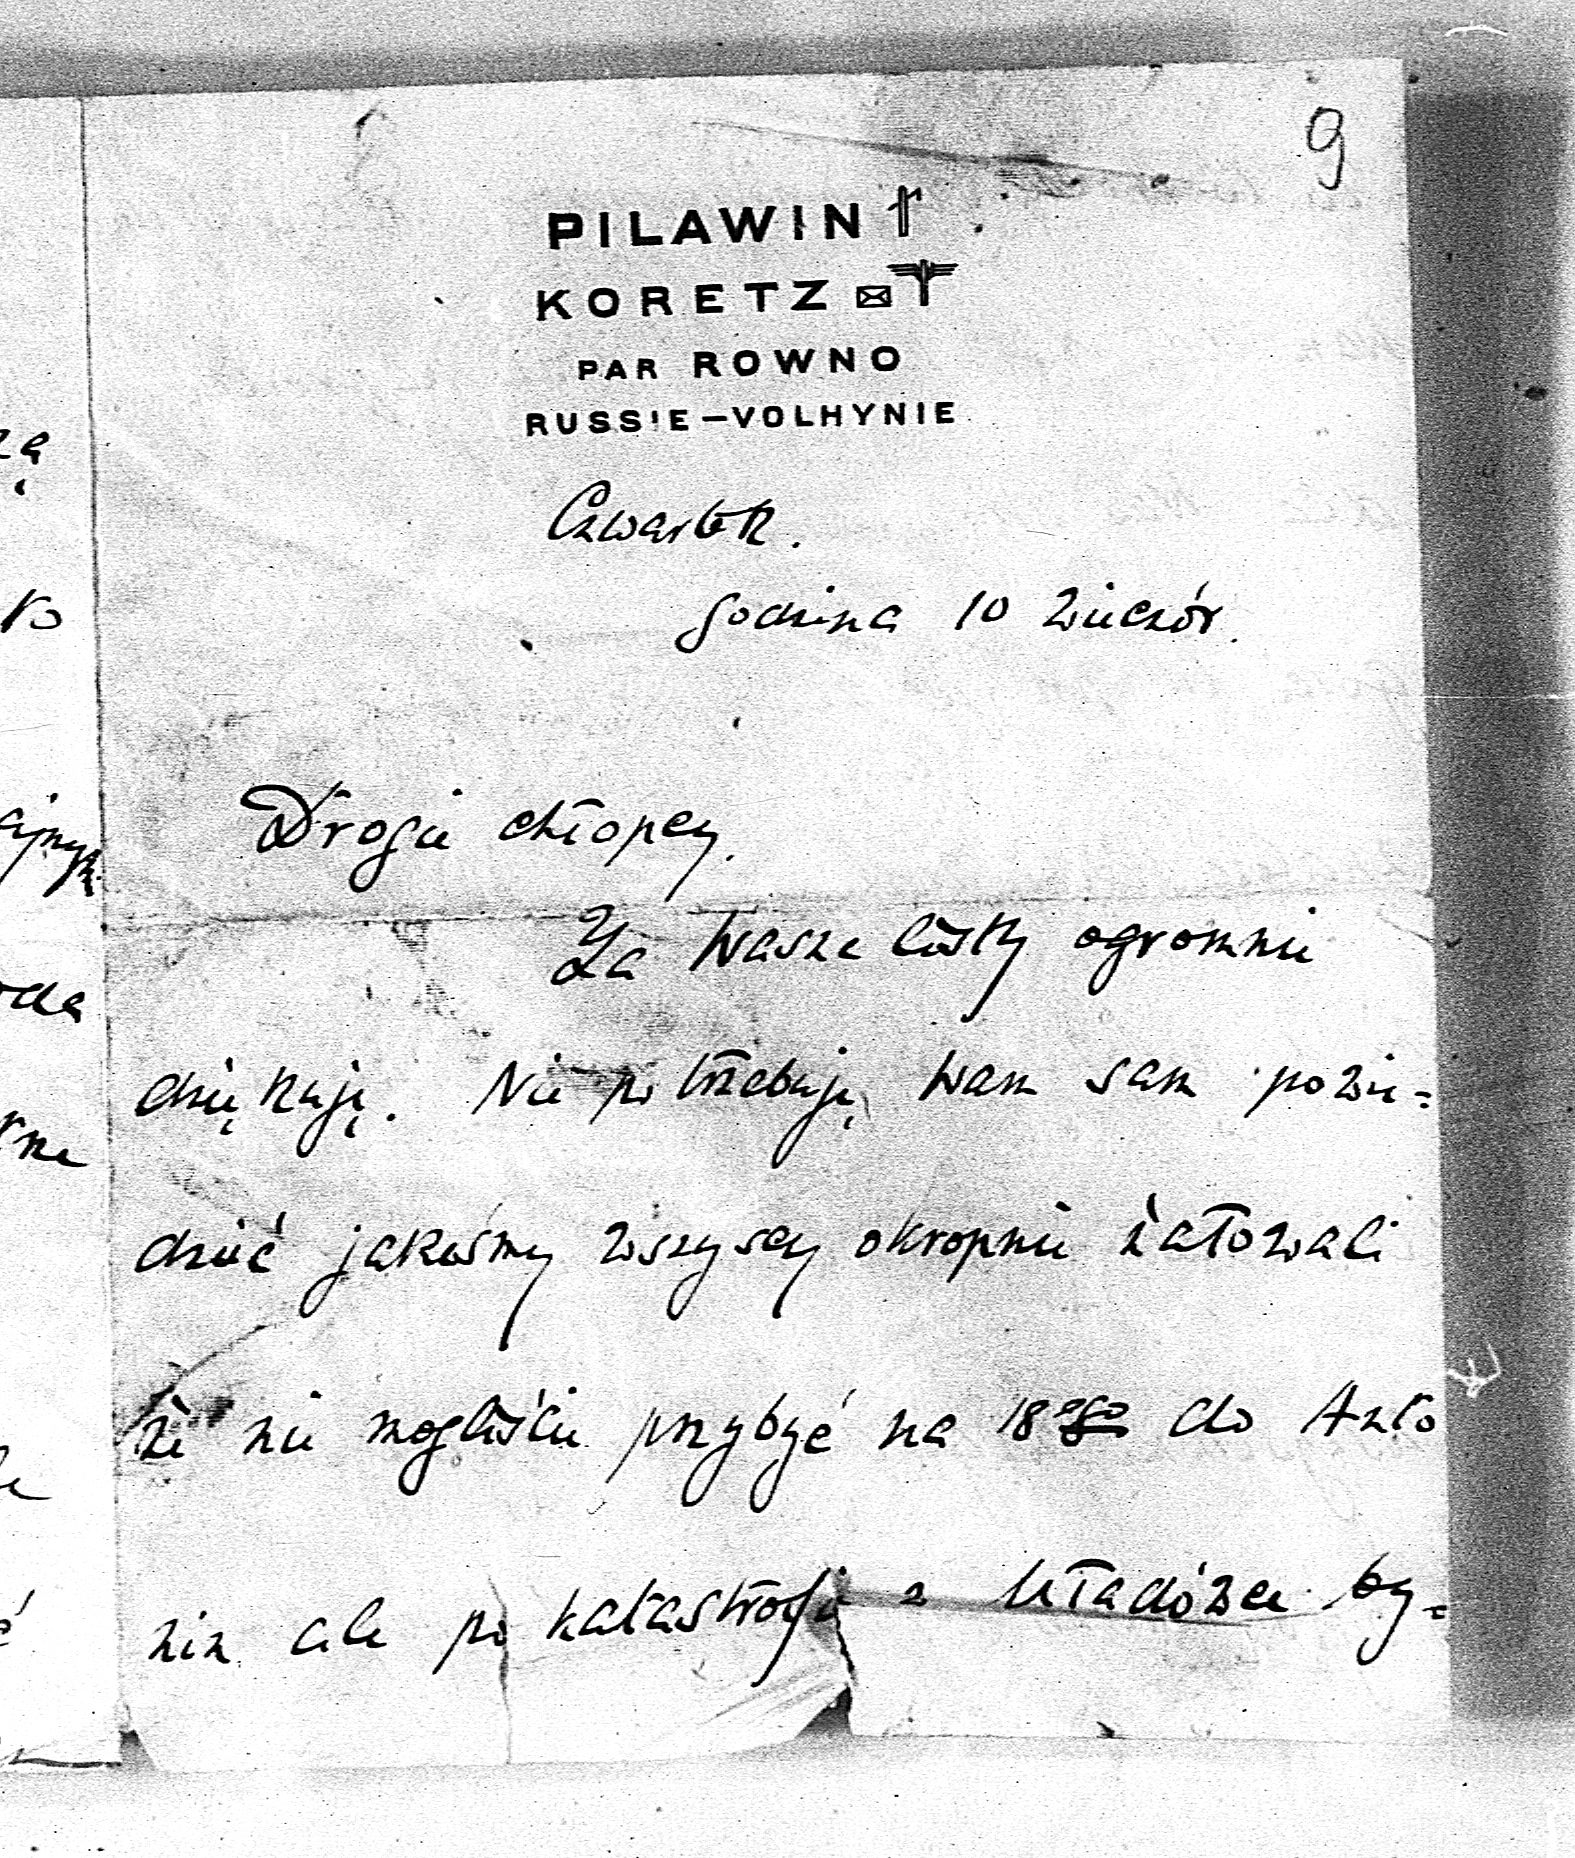 9
PILAWIN
KORETZ
PAR ROWNO
RUSSIE—VOLHYNIE
Czwartek.
godzina 10 wieczór.
Drogie chłopcy.
Za Wasze listy ogromnie
dziękuję. Nie potrzebuję Wam sam powie=
dzieć jakeśmy wszyscy okropnie żałowali
że nie mogliście przybyć na 18ego do Anto
nin ale po katastrofie z Uładówce by=